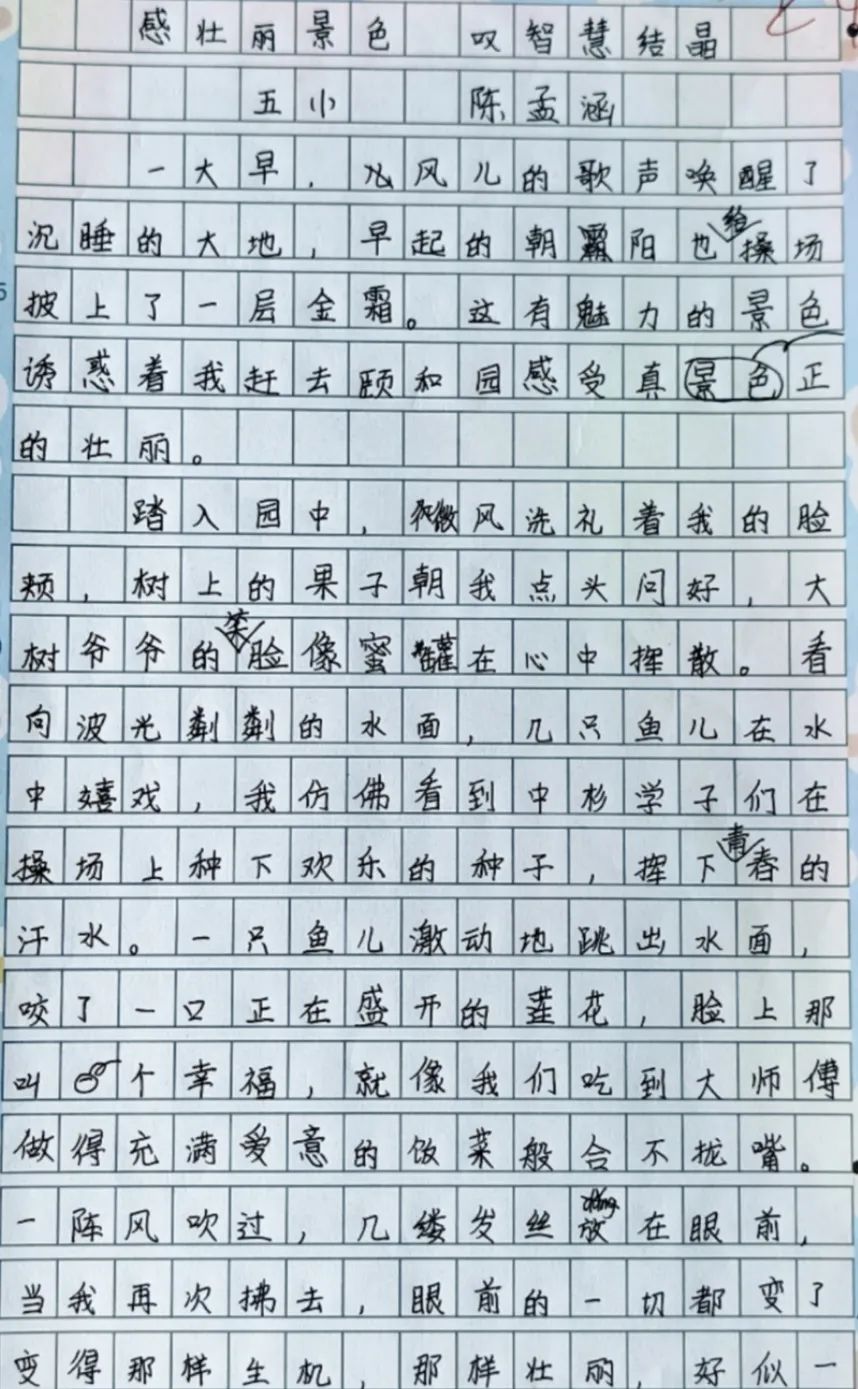 感壮丽景色 叹智慧结晶
五小 陈孟涵
一大早，风儿的歌声唤醒了
沉睡的大地，早起的朝阳也给操场
披上了一层金霜。这有魅力的景色
诱惑着我赶去颐和园感受真正景色
的壮丽。
踏入园中，微风洗礼着我的脸
颊，树上的果子朝我点头问好，大
树爷爷的笑脸像蜜罐在心中挥散。看
向波光粼粼的水面，几只鱼儿在水
中嬉戏，我仿佛看到中杉学子们在
操场上种下欢乐的种子，挥下青春的
汗水。一只鱼儿激动地跳出水面，
咬了一口正在盛开的莲花，脸上那
叫个幸福，就像我们吃到大师傅
做得充满爱意的饭菜般合不拢嘴。
一阵风吹过，几缕发丝放在眼前，
当我再次拂去，眼前的一切都变了
变得那样生机，那样壮丽，好似一